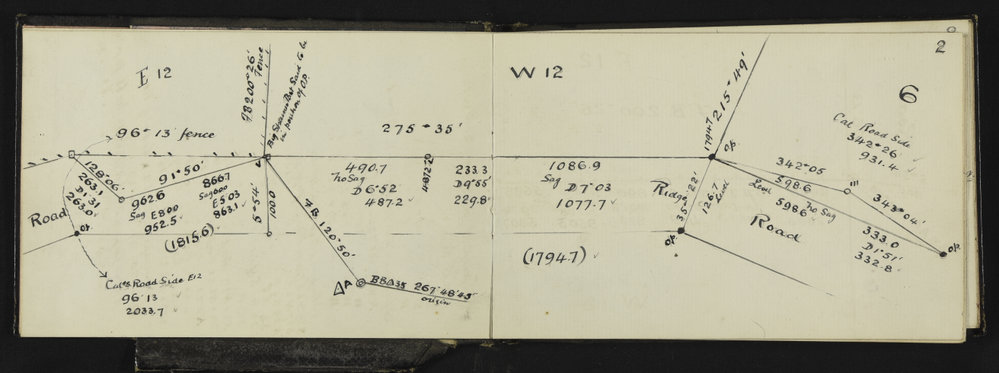 E 12
96° 13' fence
FB 200° 26'
Fence
Big Strainer Post Said to be
in position of O.P.
275° 35'
128° 06'
263.1
D 1.31
263.0
91° 50'
962.6
Sag E 8.00
952.5
866.7
Sag 600
E 5.03
863.1
(1815.6)
Road
O.P.
5° 54'
100.0
490.7
No Sag
D 6° 52
487.2
4872.70
233.3
D 9° 55'
229.8
FB 120° 50'
ΔA
267° 48' 45"
origin
Calc Road Side E12
96° 13
2033.7
W 12
2
6
215° 49'
1794.7
O.P.
1086.9
Sag
D 7° 03
1077.7
Ridge
35° 22'
126.7
Level
O.P.
(1794.7)
Cal Road Side
342° 26
931.4
342° 05
598.6
Level
No Sag
598.6
343° 04'
333.0
D 1° 51'
332.8
O.P.
Road